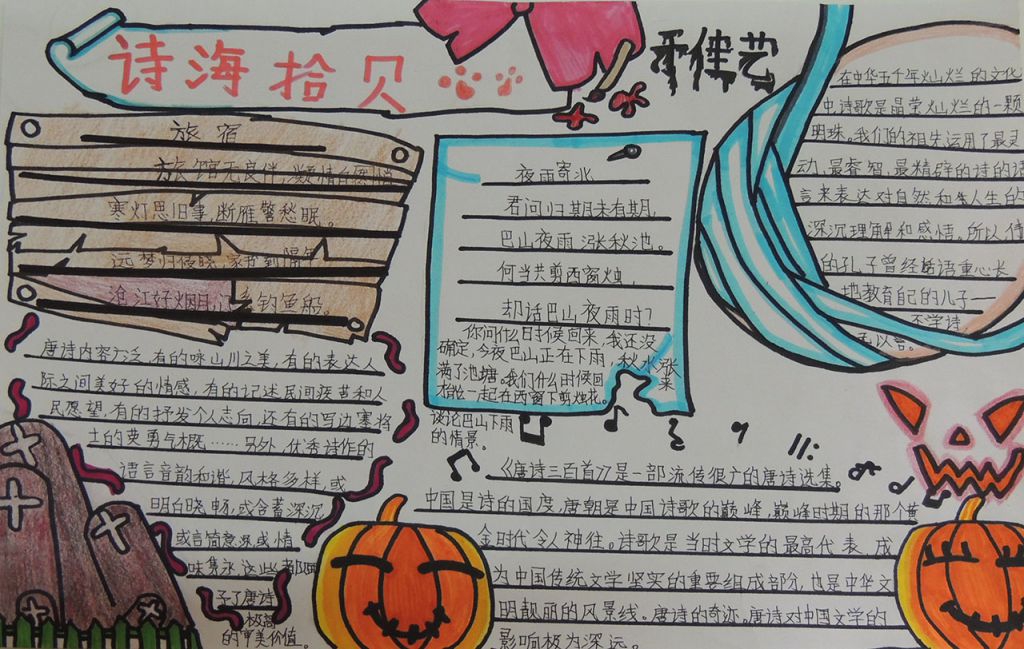 诗海拾贝
旅宿
旅馆无良伴,凝情自悄
寒灯思旧事,断雁警愁眠。
远梦归侵晓,家书到隔年
沧江好烟月,门系钓鱼船。
唐诗内容广泛,有的咏山川之美,有的表达人
际之间美好的情感,有的记述民间疾苦和人
民愿望,有的抒发个人志向,还有的写边塞将
士的英勇气概……另外,优秀诗作的
语言音韵和谐,风格多样,或
明白晓畅,或含蓄深沉
或言简意深或情
味隽永这些都
予了唐诗
极高
的审美价值。
夜雨寄北
君问归期未有期,
巴山夜雨涨秋池。
何当共剪西窗烛,
却话巴山夜雨时?
你问什么时候回来,我还没
确定,今夜巴山正在下雨,秋水涨
满了池塘。我们什么时候回来
才能一起在西窗下剪烛花。
谈论巴山下雨
的情景。
佳艺
在中华五千年灿烂的文化
中诗歌是晶莹灿烂的一颗
明珠。我们的祖先运用了最灵
动,最睿智,最精辟的诗的语
言来表达对自然和人生的
深沉理解和感悟。所以
的孔子曾经语重心长
地教育自己的儿子——
不学诗
无以言。
《唐诗三百首》是一部流传很广的唐诗选集。
中国是诗的国度,唐朝是中国诗歌的巅峰,巅峰时期的那个黄
金时代令人神往。诗歌是当时文学的最高代表,成
为中国传统文学坚实的重要组成部分,也是中华文
明靓丽的风景线。唐诗的奇迹。唐诗对中国文学的
影响极为深远。